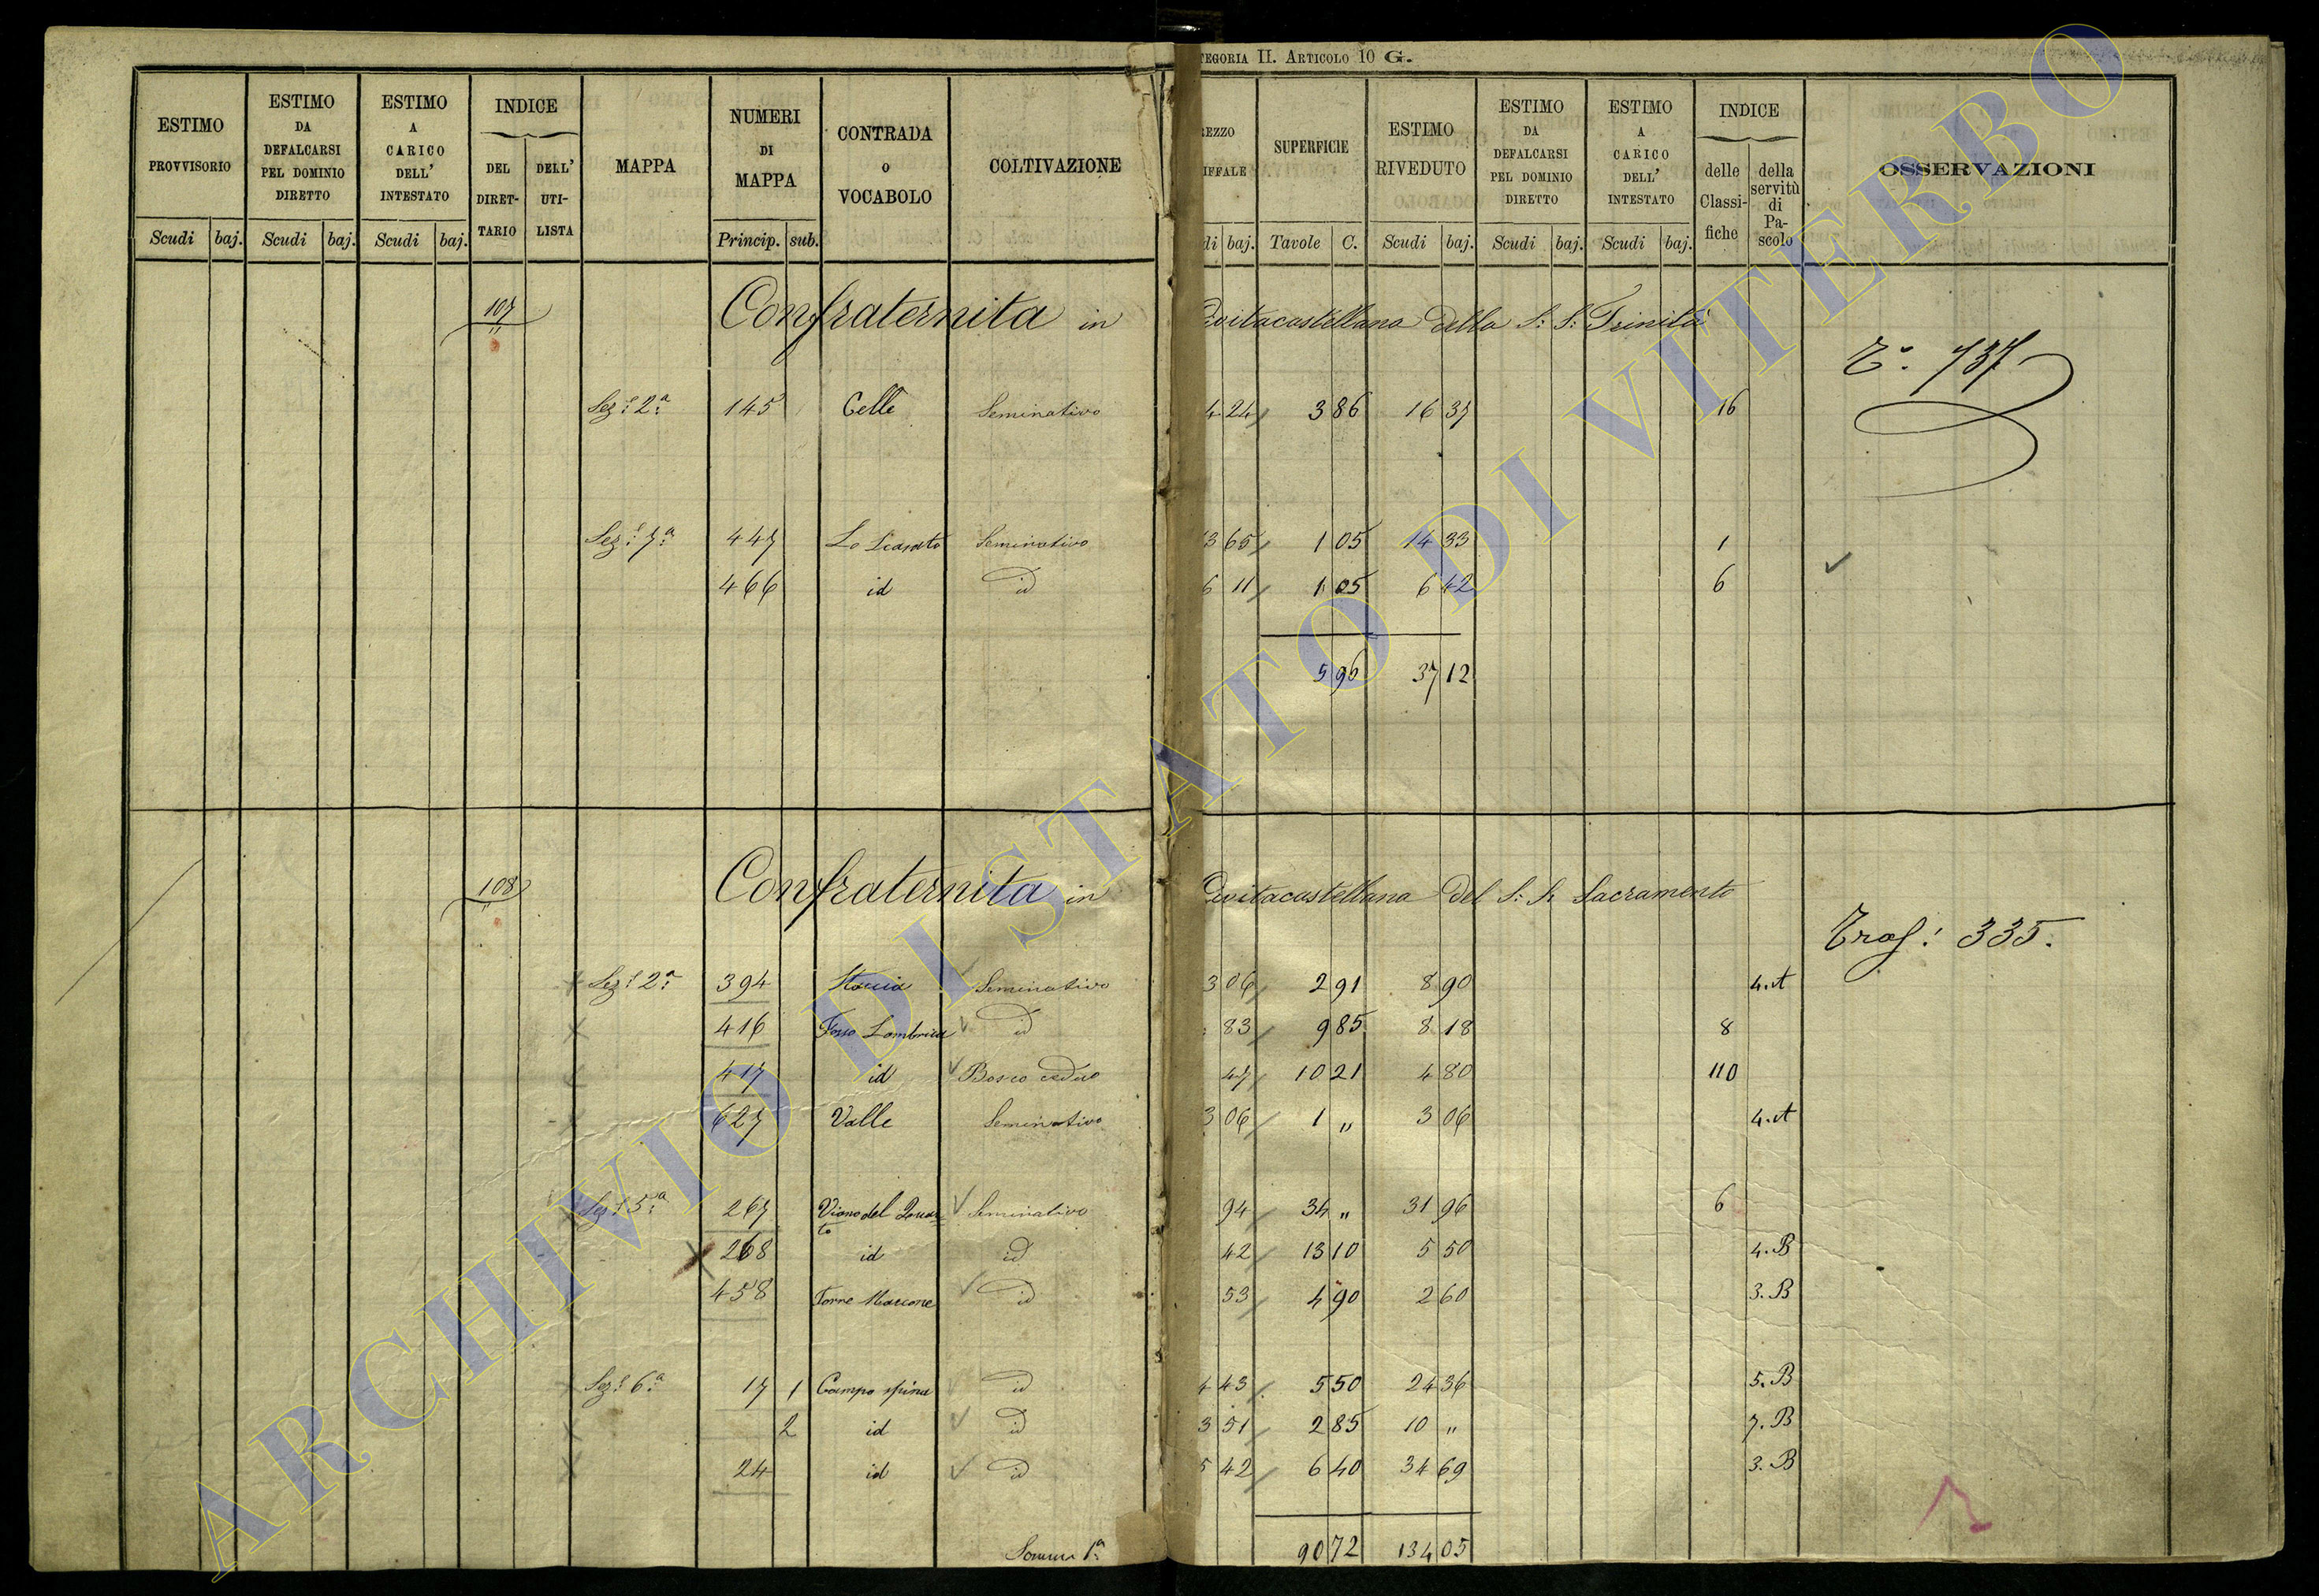 CATEGORIA II. ARTICOLO 10 G.
ESTIMO PROVVISORIO | ESTIMO DA DEFALCARSI PEL DOMINIO DIRETTO | ESTIMO A CARICO DELL' INTESTATO | INDICE | MAPPA | NUMERI DI MAPPA | CONTRADA o VOCABOLO | COLTIVAZIONE | REZZO IFFALE | SUPERFICIE | ESTIMO RIVEDUTO | ESTIMO DA DEFALCARSI PEL DOMINIO DIRETTO | ESTIMO A CARICO DELL' INTESTATO | INDICE | OSSERVAZIONI
DEL DIRETTARIO | DELL' UTILISTA | delle Classifiche | della servitù di Pascolo
Scudi baj. | Scudi baj. | Scudi baj. | Princip. sub. | di baj. | Tavole C. | Scudi baj. | Scudi baj. | Scudi baj.
107 Confraternita in Civitacastellana della S: S: Trinità
T° 737
Sez: 2a 145 Celle Seminativo 4 24 3 86 16 37 16
Sez: 7a 447 Seminativo 3 65 1 05 14 33 1
466 id id 6 11 1 05 6 42 6
5 96 37 12
108 Confraternita in Civitacastellana del S: S. Sacramento
Traf: 335.
Sez: 2a 394 Seminativo 3 06 2 91 8 90 4. A
416 Fosso id 83 9 85 8 18 8
417 id Bosco ceduo 47 10 21 4 80 110
627 Valle Seminativo 3 06 1 " 3 06 4. A
Sez: 5a 267 Viano del Seminativo 94 34 " 31 96 6
268 id id 42 13 10 5 50 4. B
458 Torre Marcone id 53 4 90 2 60 3. B
Sez: 6a 17 1 Campo spina id 4 43 5 50 24 36 5. B
2 id id 3 51 2 85 10 " 7. B
24 id id 5 42 6 40 34 69 3. B
Somma 1a 90 72 134 05
ARCHIVIO DI STATO DI VITERBO